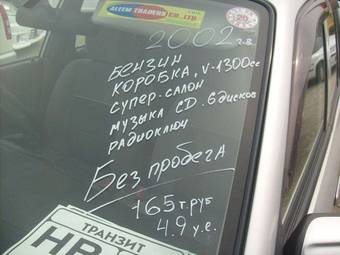 ALEEM TRADERS CO., LTD.
20
2002 г.в.
БЕНЗИН
КОРОБКА, V-1300сс
СУПЕР-САЛОН
МУЗЫКА CD. 6 дисков
РАДИОКЛЮЧ
Без пробега
165 т.руб
4.9 у.е.
ТРАНЗИТ
НВ